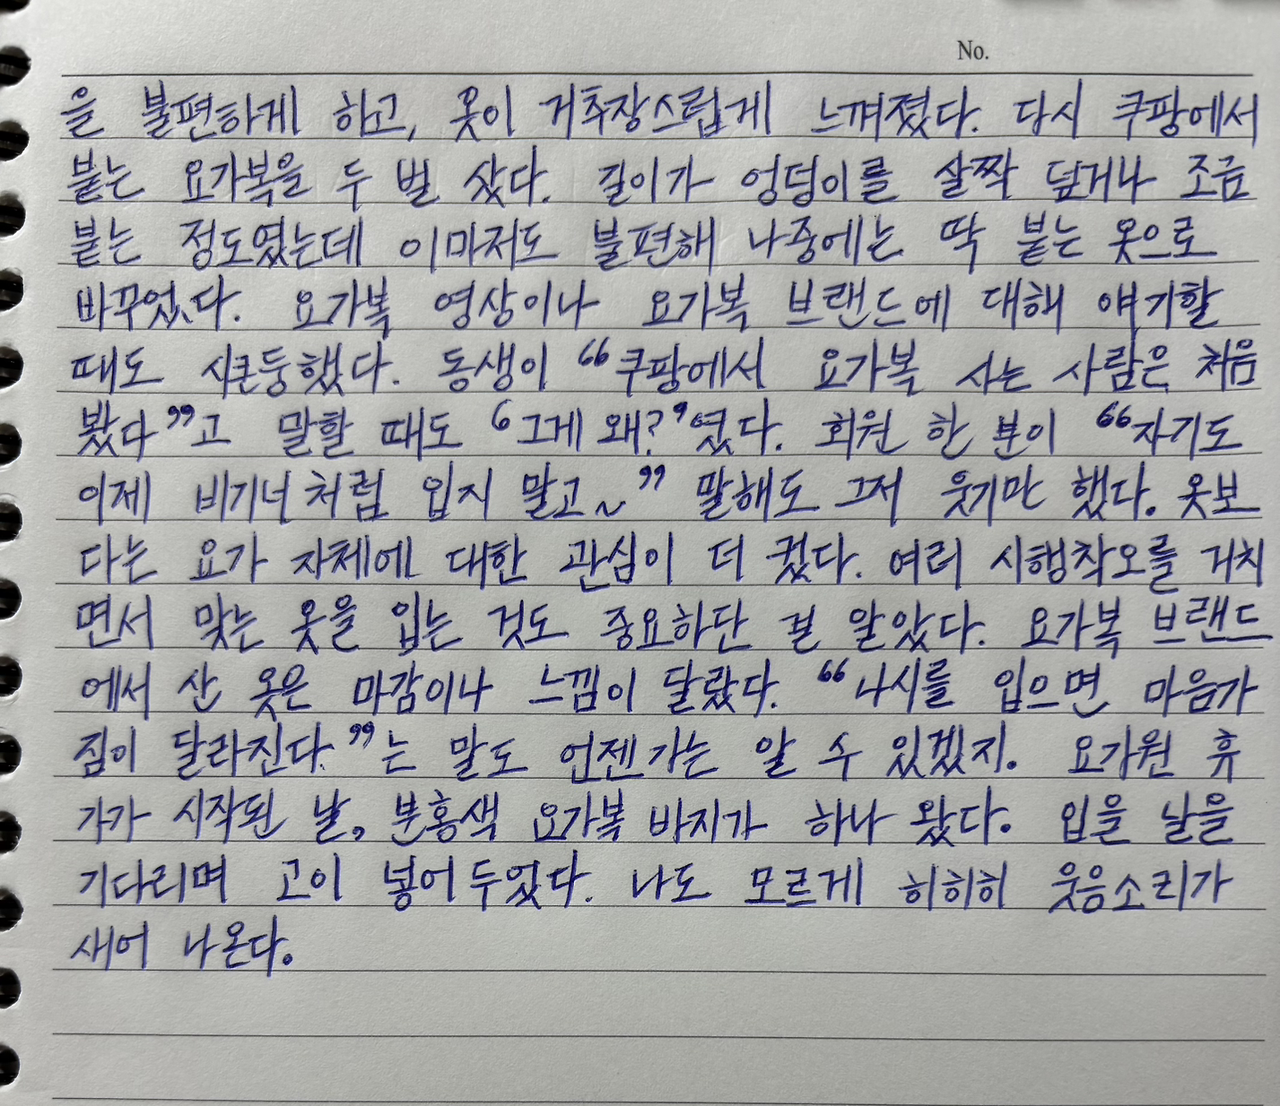 No.
을 불편하게 하고, 옷이 거추장스럽게 느껴졌다. 다시 쿠팡에서
붙는 요가복을 두 벌 샀다. 길이가 엉덩이를 살짝 덮거나 조금
붙는 정도였는데 이마저도 불편해 나중에는 딱 붙는 옷으로
바꾸었다. 요가복 영상이나 요가복 브랜드에 대해 얘기할
때도 시큰둥했다. 동생이 “쿠팡에서 요가복 사는 사람은 처음
봤다”고 말할 때도 ‘그게 왜?’였다. 회원 한 분이 “자기도
이제 비기너처럼 입지 말고~” 말해도 그저 웃기만 했다. 옷보
다는 요가 자체에 대한 관심이 더 컸다. 여러 시행착오를 거치
면서 맞는 옷을 입는 것도 중요하단 걸 알았다. 요가복 브랜드
에서 산 옷은 마감이나 느낌이 달랐다. “나시를 입으면 마음가
짐이 달라진다.”는 말도 언젠가는 알 수 있겠지. 요가원 휴
가가 시작된 날, 분홍색 요가복 바지가 하나 왔다. 입을 날을
기다리며 고이 넣어 두었다. 나도 모르게 히히히 웃음소리가
새어 나온다.